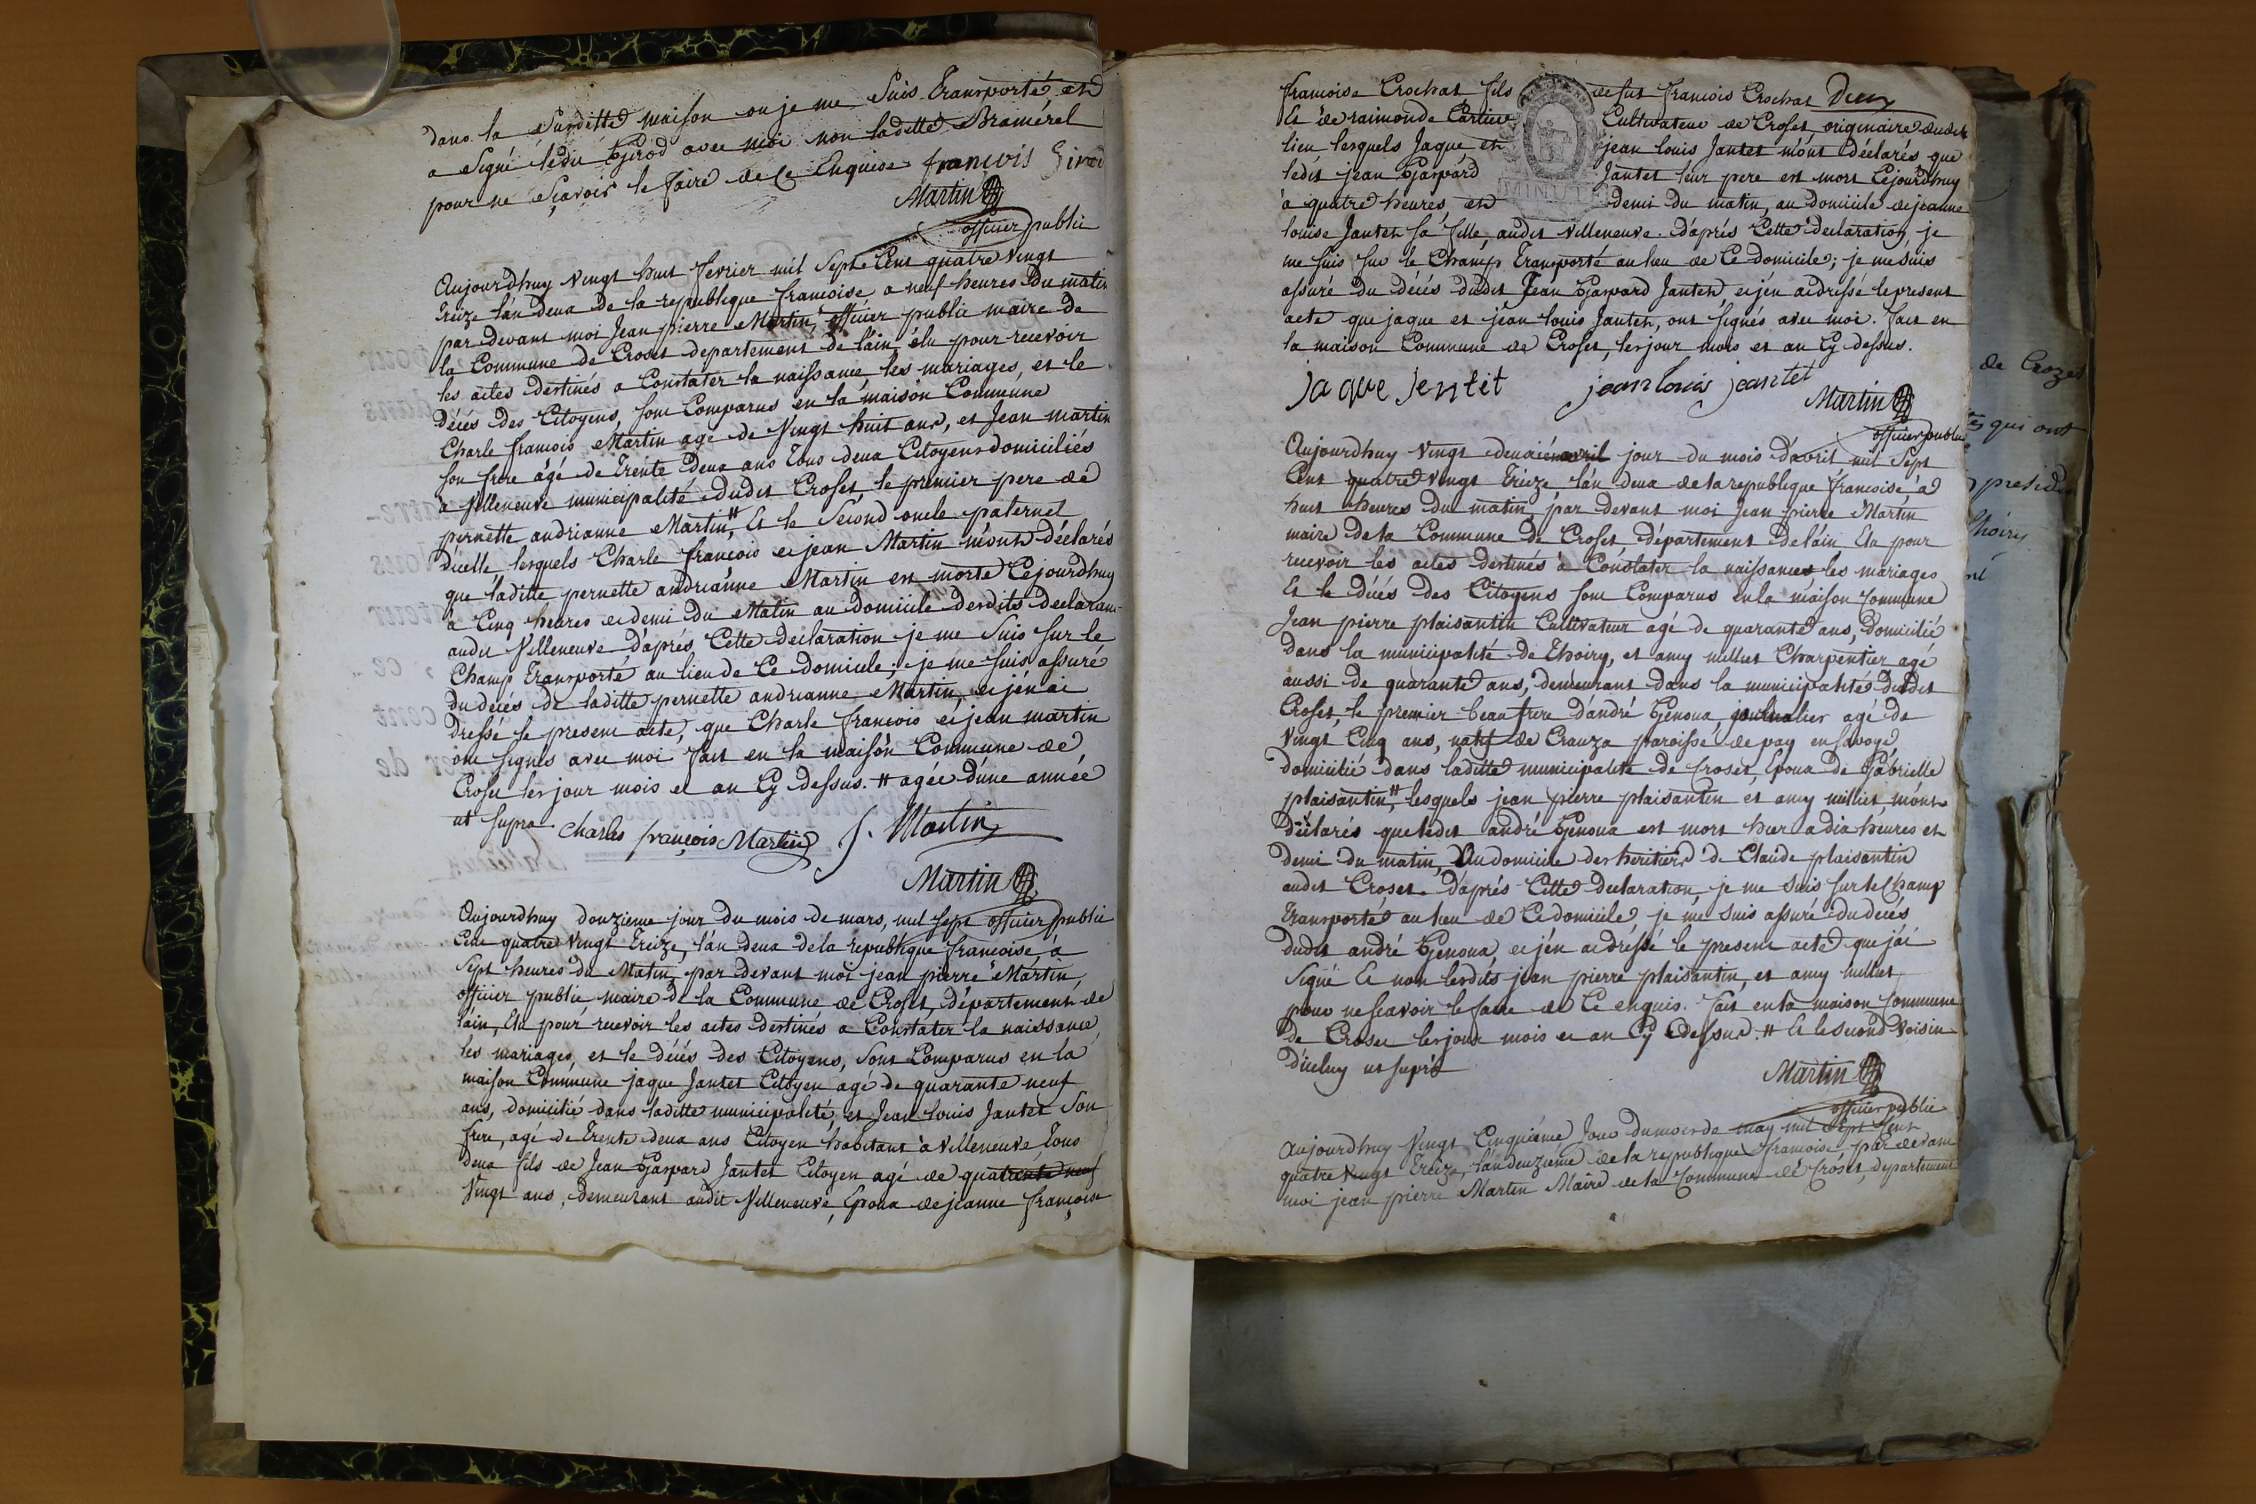 dans la Surditte maison ou je me Suis Transporté, et
a Signé ledit Girod avec moi non laditte Bramérel
pour ne Sçavoir le faire de Ce Enquise françois Girod
Martin
officier public
Aujourdhuy vingt huit fevrier mil Sept Cent quatre vingt
treize l'an deux de la republique francoise a neuf heures Du matin
par devant moi Jean pierre Martin, officier public maire de
la Commune de Croset departement de l'ain, élu pour recevoir
les actes destinés a Constater la naissance, les mariages, et le
décés des Citoyens, sont Comparus en la maison Commune
Charle françois Martin agé de Vingt huit ans, et Jean martin
son frere âgé de Trente Deux ans Tous deux Citoyens domiciliés
a Villeneuve municipalité dudit Croset, le premier pere de
pernette andrianne Martin, # Et le Second oncle paternel
d'icelle, lesquels Charle françois et jean Martin m'ont déclarés
que laditte pernette andrianne Martin est morte Cejourdhuy
a Cinq heures et demi du Matin au domicile desdits declarants
audit Villeneuve d'aprés Cette declaration je me Suis sur le
Champ Transporté au lieu de Ce domicile; je me suis assuré
du décés de laditte pernette andrianne Martin, et j'en ai
dressé le present acte, que Charle françois et jean martin
ont signés avec moi fait en la maison Commune de
Croset les jour mois et an Cy dessus. # agée d'une année
ut supra Charles françois Martin J. Martin
Martin
Aujourdhuy douzieme jour du mois de mars, mil sept officier public
Cent quatre Vingt Treize, l'an deux de la republique francoise, a
Sept heures du Matin, par devant moi jean pierre Martin,
officier public maire de la Commune de Croset, département de
l'ain, Elu pour recevoir les actes destinés a Constater la naissance,
les mariages, et le décés des Citoyens, Sont Comparus en la
maison Commune jaque Jantet Citoyen agé de quarante neuf
ans, domicilié dans laditte municipalité, et Jean Louis Jantet Son
frere, agé de Trente deux ans Citoyen habitant a Villeneuve, Tous
deux fils de Jean Gaspard Jantet Citoyen agé de quatrente neuf
Vingt ans, demeurant audit Villeneuve, Epoux de jeanne françoise
francoise Crochat fils de fut francois Crochat Deux
Et de raimonde Cartier Cultivateur de Croset, originaire dudit
lieu lesquels Jaque et jean louis Jantet m'ont déclarés que
ledit jean Gaspard Jantet leur pere est mort Cejourdhuy
à quatre heures, et demi du matin, au domicile de jeanne
louise Jantet sa fille, audit Villeneuve. d'aprés Cette declaration, je
me suis sur le Champ Transporté au lieu de Ce domicile; je me suis
assuré du décés dudit Jean Gaspard Jantet et j'en ai dréssé le present
acte que jaque et jean louis Jantet, ont signés avec moi. fait en
la maison Commune de Croset, les jour mois et an Cy dessus.
MINUTE
jaque jentet jean louis jeantet
Martin
officier public
Aujourdhuy vingt deuxiém avril jour du mois d'avril mil Sept
Cent quatre vingt Treize l'an deux de la republique francoise, à
huit heures du matin, par devant moi Jean pierre Martin
maire de la Commune de Croset département de l'ain Elu pour
recevoir les actes destinés à Constater la naissances les mariages
Et le décés des Citoyens sont Comparus en la maison Commune
Jean pierre plaisantin Cultivateur agé de quarante ans, domicilié
dans la municipalité de Thoiry, et amy milliet Charpentier agé
aussi de quarante ans, demeurant dans la municipalité dudit
Croset, le premier beaufrere d'andré Genoux, journalier agé de
Vingt Cinq ans, natif de Cranza paroisse de pay en savoye,
domicilié dans laditte municipalité de Croset, Epoux de Gabrielle
plaisantin # lesquels jean pierre plaisantin et amy milliet, m'ont
déclarés que ledit andré Genoux est mort hier a dix heures et
demi du matin, Au domicile des heritiers de Claude plaisantin
audit Croset. d'aprés Cette declaration je me suis sur le Champ
Transporté au lieu de Ce domicile je me suis assuré du decés
dudit andré Genoux, et j'en ai dréssé le present acte que j'ai
Signé Et non lesdits jean pierre plaisantin, et amy milliet,
pour ne scavoir le faire de Ce enquis. fait en la maison Commune
de Croset les jour mois et an Cy dessus. # Et le second voisin
d'icluy ut supra
Martin
officier public
Aujourdhuy Vingt Cinquiéme Jour du mois de may mil Sept Cent
quatre Vingt Treize, l'an deuxieme de la republique francoise par devant
moi jean pierre Martin Maire de la Commune de Croset, departement
de Crozet
qui ont
presid
Thoiry